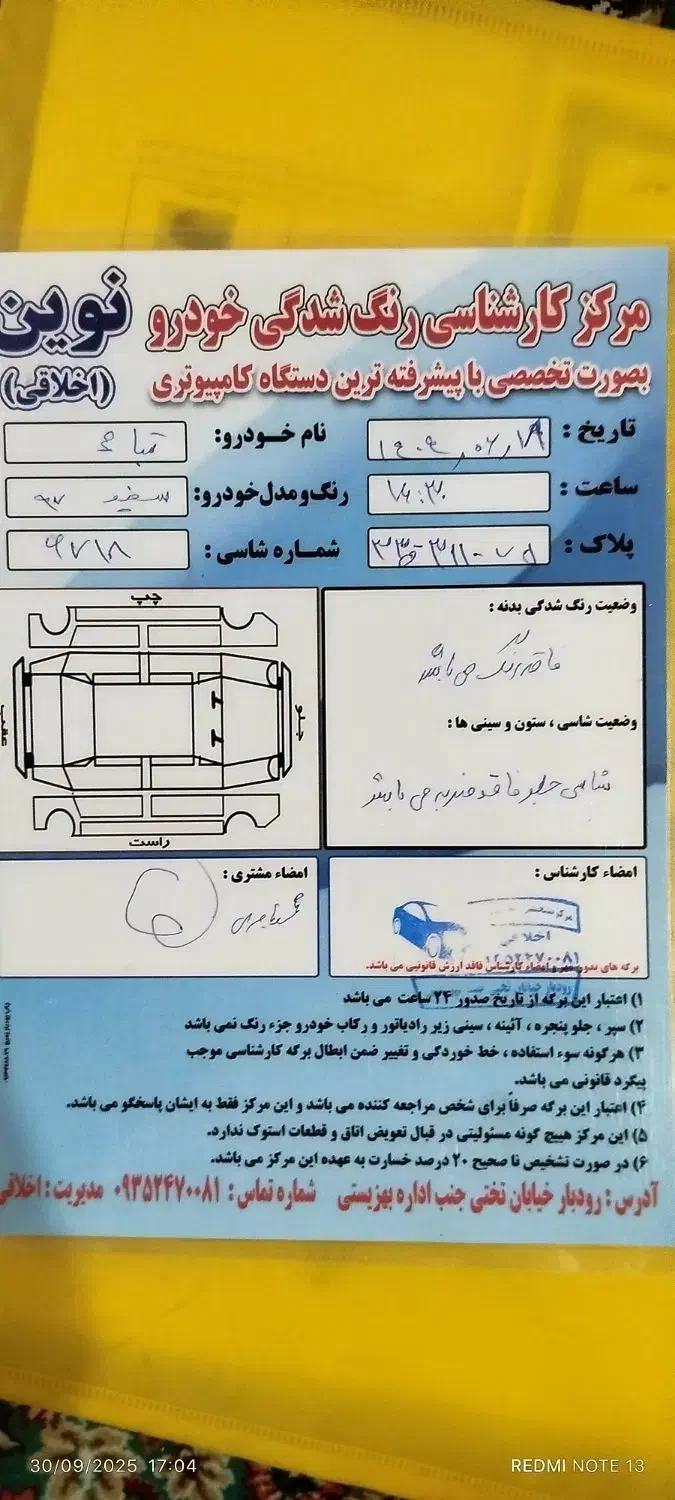 مرکز کارشناسی رنگ شدگی خودرو نوین
بصورت تخصصی با پیشرفته ترین دستگاه کامپیوتری (اخلاقی)
تاریخ :
نام خودرو: تیبا ۲
ساعت : ۱۷:۳۰
رنگ و مدل خودرو: سفید ۹۷
پلاک :
شماره شاسی : ۹۷۱۸
وضعیت رنگ شدگی بدنه :
فاقد رنگ می باشد
وضعیت شاسی ، ستون و سینی ها :
شاسی جلو فاقد ضربه می باشد
چپ
جلو
عقب
راست
امضاء کارشناس :
امضاء مشتری :
اخلاقی
برگه های بدون مهر و امضاء کارشناس فاقد ارزش قانونی می باشد.
۱) اعتبار این برگه از تاریخ صدور ۲۴ ساعت می باشد
۲) سپر ، جلو پنجره ، آئینه ، سینی زیر رادیاتور و رکاب خودرو جزء رنگ نمی باشد
۳) هرگونه سوء استفاده ، خط خوردگی و تغییر ضمن ابطال برگه کارشناسی موجب
پیگرد قانونی می باشد.
۴) اعتبار این برگه صرفاً برای شخص مراجعه کننده می باشد و این مرکز فقط به ایشان پاسخگو می باشد.
۵) این مرکز هیچ گونه مسئولیتی در قبال تعویض اتاق و قطعات استوک ندارد.
۶) در صورت تشخیص نا صحیح ۲۰ درصد خسارت به عهده این مرکز می باشد.
آدرس : رودبار خیابان تختی جنب اداره بهزیستی شماره تماس : ۰۹۳۵۲۴۷۰۰۸۱ مدیریت : اخلاقی
30/09/2025 17:04
REDMI NOTE 13